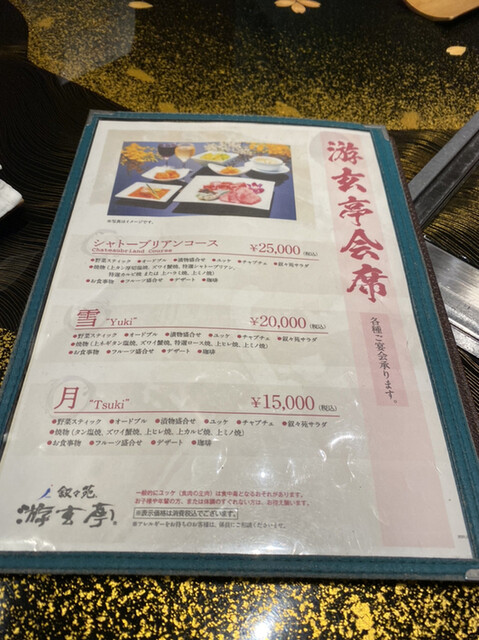 游玄亭会席
各種ご宴会承ります。
※写真はイメージです。
シャトーブリアンコース ¥25,000(税込)
Chateaubriand Course
●野菜スティック ●オードブル ●漬物盛合せ ●ユッケ ●チャプチェ ●叙々苑サラダ
●焼物(上タン厚切塩焼、ズワイ蟹焼、特選シャトーブリアン、
特選カルビ焼 または 上ハラミ焼、上ミノ焼)
●お食事物 ●フルーツ盛合せ ●デザート ●珈琲
雪 "Yuki" ¥20,000(税込)
●野菜スティック ●オードブル ●漬物盛合せ ●ユッケ ●チャプチェ ●叙々苑サラダ
●焼物(上ネギタン塩焼、ズワイ蟹焼、特選ロース焼、上ヒレ焼、上ミノ焼)
●お食事物 ●フルーツ盛合せ ●デザート ●珈琲
月 "Tsuki" ¥15,000(税込)
●野菜スティック ●オードブル ●漬物盛合せ ●ユッケ ●チャプチェ ●叙々苑サラダ
●焼物(タン塩焼、ズワイ蟹焼、上ヒレ焼、上カルビ焼、上ミノ焼)
●お食事物 ●フルーツ盛合せ ●デザート ●珈琲
叙々苑
游玄亭
一般的にユッケ(食肉の生肉)は食中毒となるおそれがあります。
お子様や年輩の方、または体調のすぐれない方は、お控え願います。
※表示価格は消費税込でございます。
※アレルギーをお持ちのお客様は、係員にご相談くださいませ。